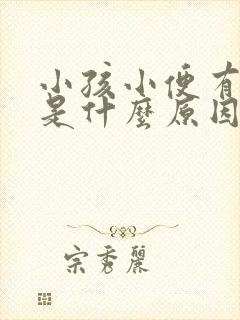 小孩小便有
是什麼原因
宗秀麗